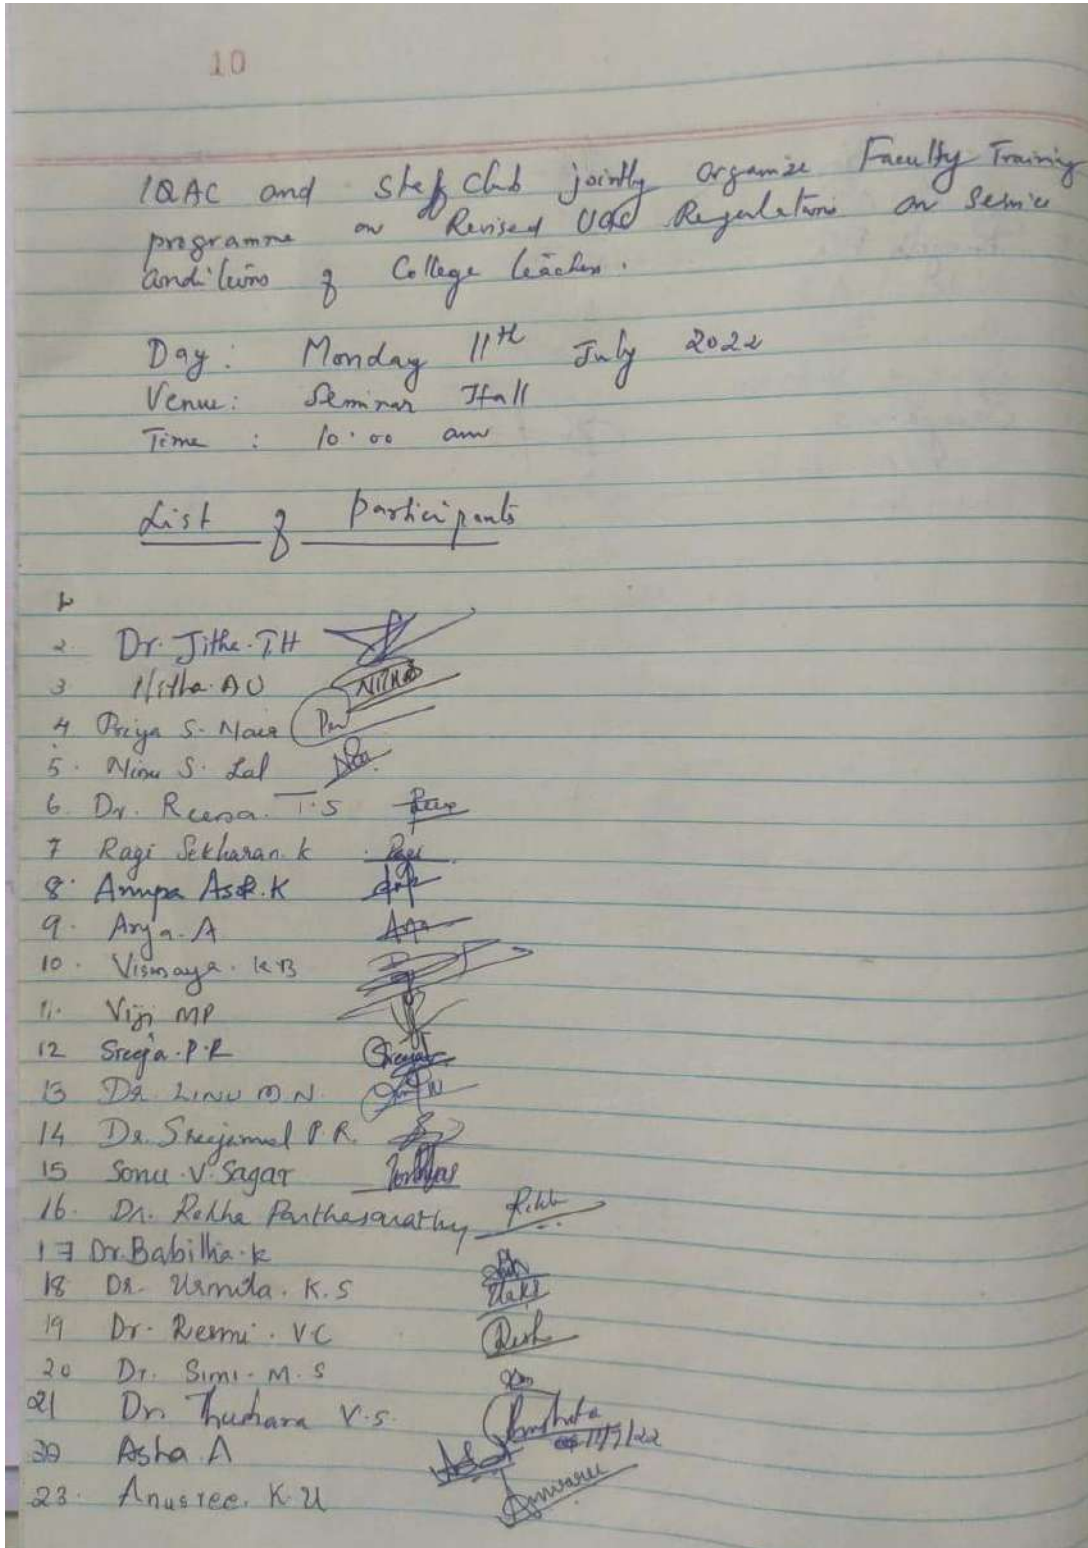 10
IQAC and Staff Club jointly organize Faculty Training
programme on Revised UGC Regulations on Service
Conditions of College teachers.
Day : Monday 11th July 2022
Venue : Seminar Hall
Time : 10.00 am
List of Participants
1.
2. Dr. Jitha. T.H
3 Nitha. A U NITHA
4 Priya S. Nair
5. Ninu S. Lal
6. Dr. Reena. T.S
7 Ragi Sekharan. K Ragi
8. Anupa Asok. K
9. Arya. A
10. Vismaya. K B
11. Viji MP
12 Sreeja. P. R
13 Dr. LINU M N.
14 Dr. Sreejamol P. R.
15 Sonu. V. Sagar
16. Dr. Rekha Parthasarathy
17 Dr. Babitha. K
18 Dr. Urmila. K. S
19 Dr. Resmi. VC
20 Dr. Simi. M. S
21 Dr. Thushara V.S.
11/7/22
22 Asha A
23. Anusree. K. U